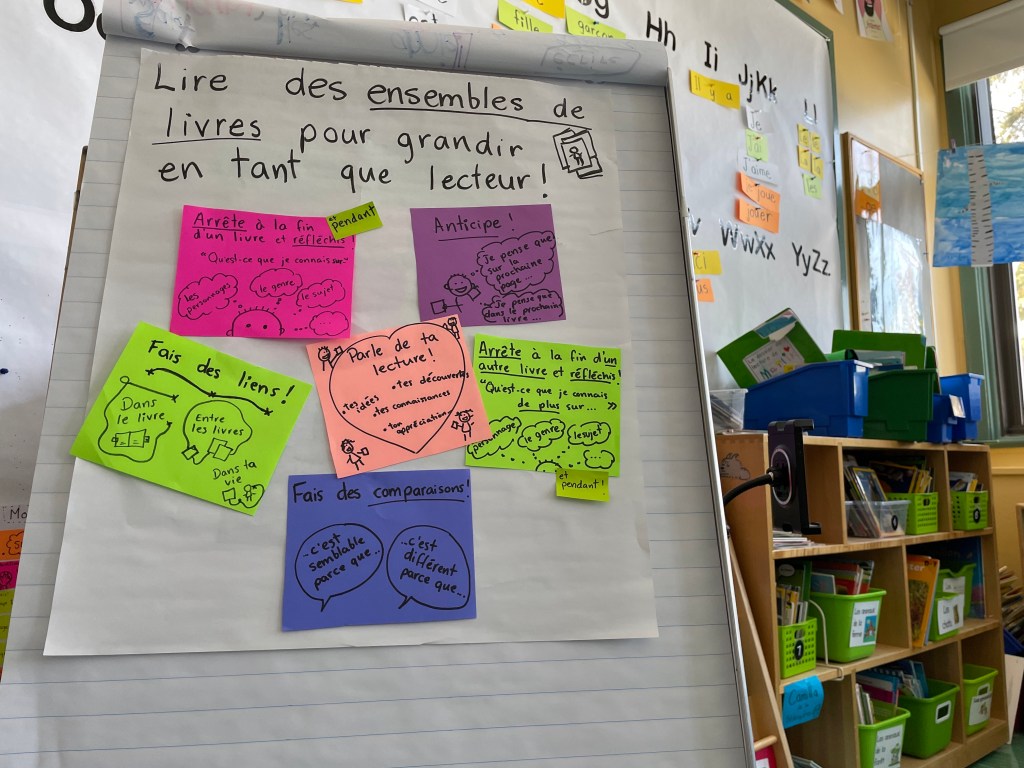 Lire des ensembles de
livres pour grandir
en tant que lecteur!
Arrête à la fin
d'un livre et réfléchis!
et
pendant
"Qu'est-ce que je connais sur...
les personnages
le genre
le sujet
...
Anticipe!
Je pense que
sur la
prochaine
page...
Je pense que
dans le prochain
livre...
Fais des liens!
Dans
le livre
Entre
les livres
Dans ta
vie
Parle de ta
lecture!
•tes découvertes
•tes idées
•tes connaissances
•ton appréciation
Arrête à la fin d'un
autre livre et réfléchis!
"Qu'est-ce que je connais
de plus sur... »
personnage
le genre
le sujet
...
et
pendant!
Fais des comparaisons!
...c'est
semblable
parce que...
...c'est
différent
parce que...
fille
garçon
Hh
Ii
JjKk
Ll
Il y a
Je
J'ai
J'aime
joue
jouer
WwXx
YyZz
us
7